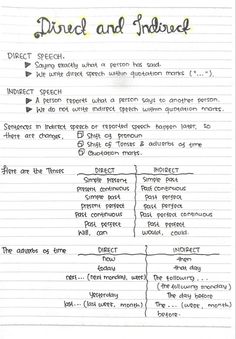 Direct and Indirect
DIRECT SPEECH.
▶ Saying exactly what a person has said.
▶ We write direct speech within quotation marks ("...")
INDIRECT SPEECH
▶ A person reports what a person says to another person.
▶ We do not write indirect speech within quotation marks.
Sentences in indirect speech or reported speech happen later, so
there are changes. Shift of pronoun
Shift of Tenses & adverbs of time
Quotation marks.
Here are the Tenses DIRECT INDIRECT
Simple Present Simple past
Present continuous Past continuous
Simple past Past perfect
Present perfect Past perfect
Past continuous Past perfect continuous
Past perfect Past perfect
Will, can would, could.
The adverbs of time DIRECT INDIRECT
now then
today that day
next... (next monday, week) The following...
(the following monday)
Yesterday The day before
last... (last week, month) The ... (week, month)
before.